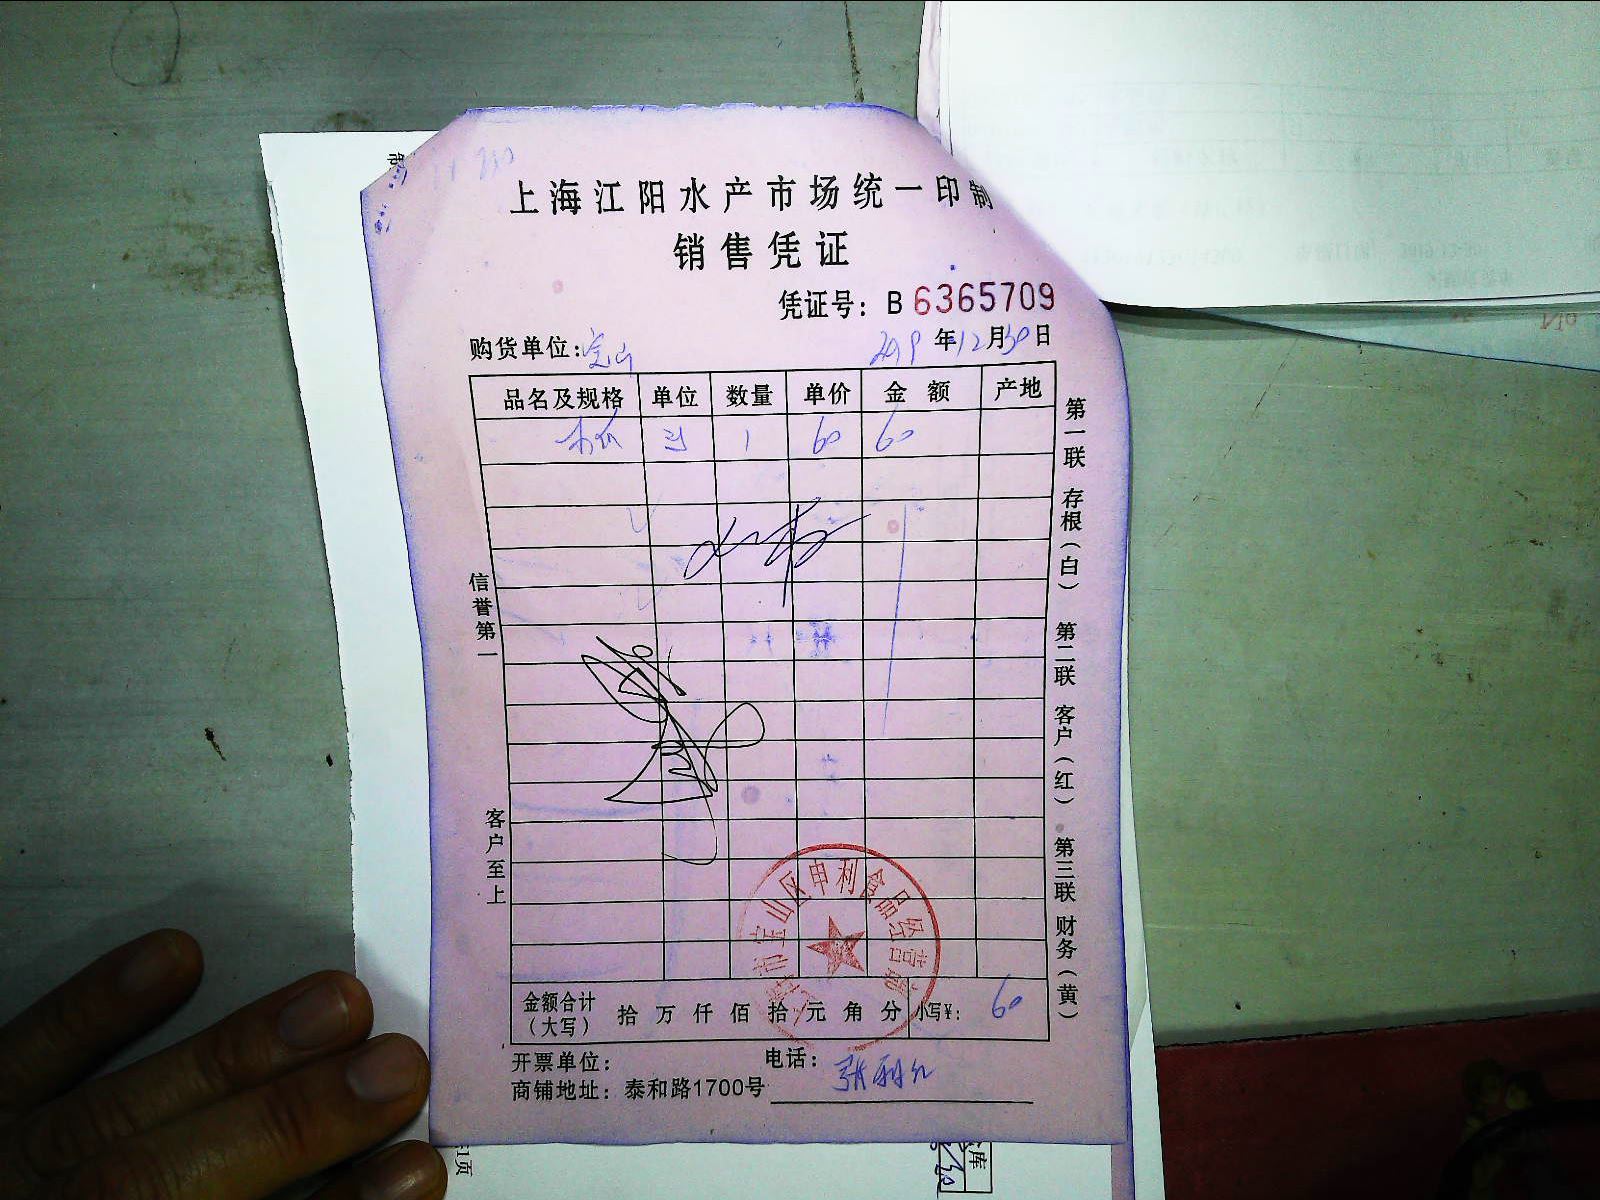 上海江阳水产市场统一印制
销售凭证
凭证号：B 6365709
购货单位：宝山 2019年12月30日
品名及规格 单位 数量 单价 金额 产地
1 60 60
信誉第一
客户至上
第一联 存根（白） 第二联 客户（红） 第三联 财务（黄）
市宝山区申利食品经营部
金额合计（大写） 拾 万 仟 佰 拾 元 角 分 小写¥： 60
开票单位： 电话：
商铺地址：泰和路1700号
张利红
1页
库